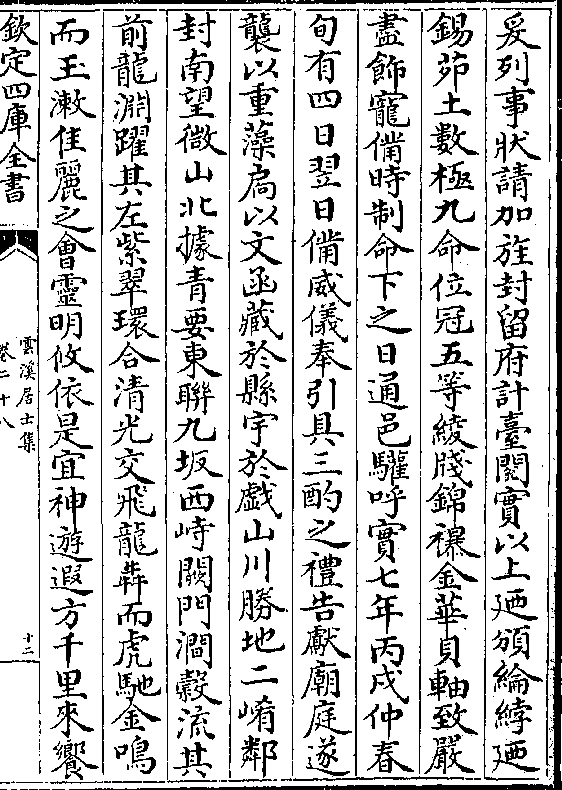 爰列事狀請加旌封留府計臺閱實以上廼頒綸綍廼
錫茆土數極九命位冠五等綾牋錦襮金華貝軸致嚴
盡飾寵備時制命下之日通邑驩呼實七年丙戌仲春
旬有四日翌日備威儀奉引具三酌之禮告獻廟庭遂
襲以重藻扄以文函藏於縣宇於戲山川勝地二崤鄰
封南望微山北據青要東聯九坂西峙闕門澗糓流其
前龍淵躍其左紫翠環合清光交飛龍犇而虎馳金鳴
而玉漱佳麗之會靈明攸依是宜神遊遐方千里來饗
欽定四庫全書
雲溪居士集
卷二十八
十二